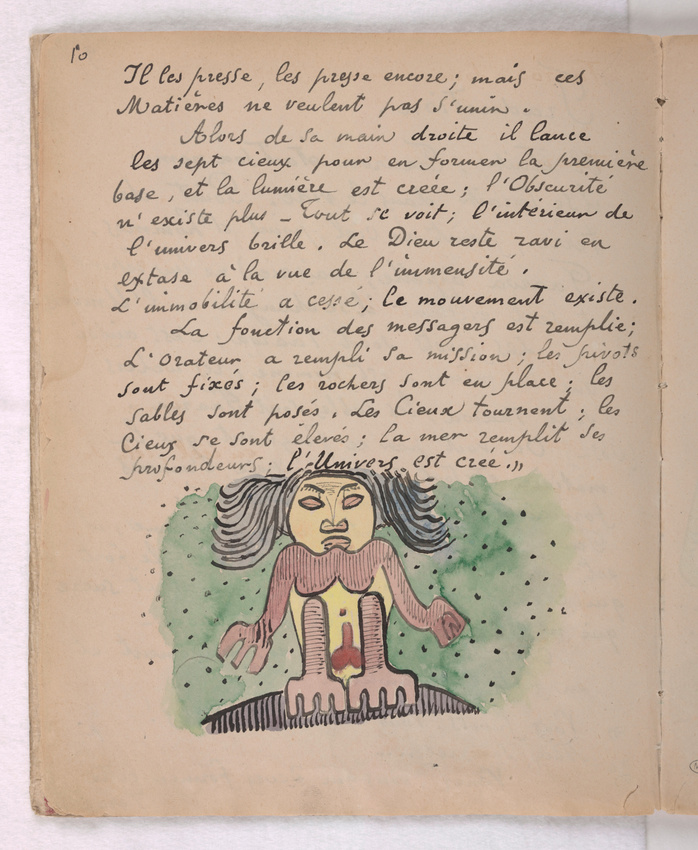 10
Il les presse, les presse encore; mais ces
Matières ne veulent pas s'unir.
Alors de sa main droite il lance
les sept cieux pour en former la première
base, et la lumière est créée; l'Obscurité
n'existe plus _ Tout se voit; l'intérieur de
l'univers brille. Le Dieu reste ravi en
extase à la vue de l'immensité.
L'immobilité a cessé; le mouvement existe.
La fonction des messagers est remplie;
L'Orateur a rempli sa mission; les pivots
sont fixés; les rochers sont en place; les
sables sont posés. Les Cieux tournent; les
Cieux se sont élevés; la mer remplit ses
profondeurs; l'Univers est créé.„